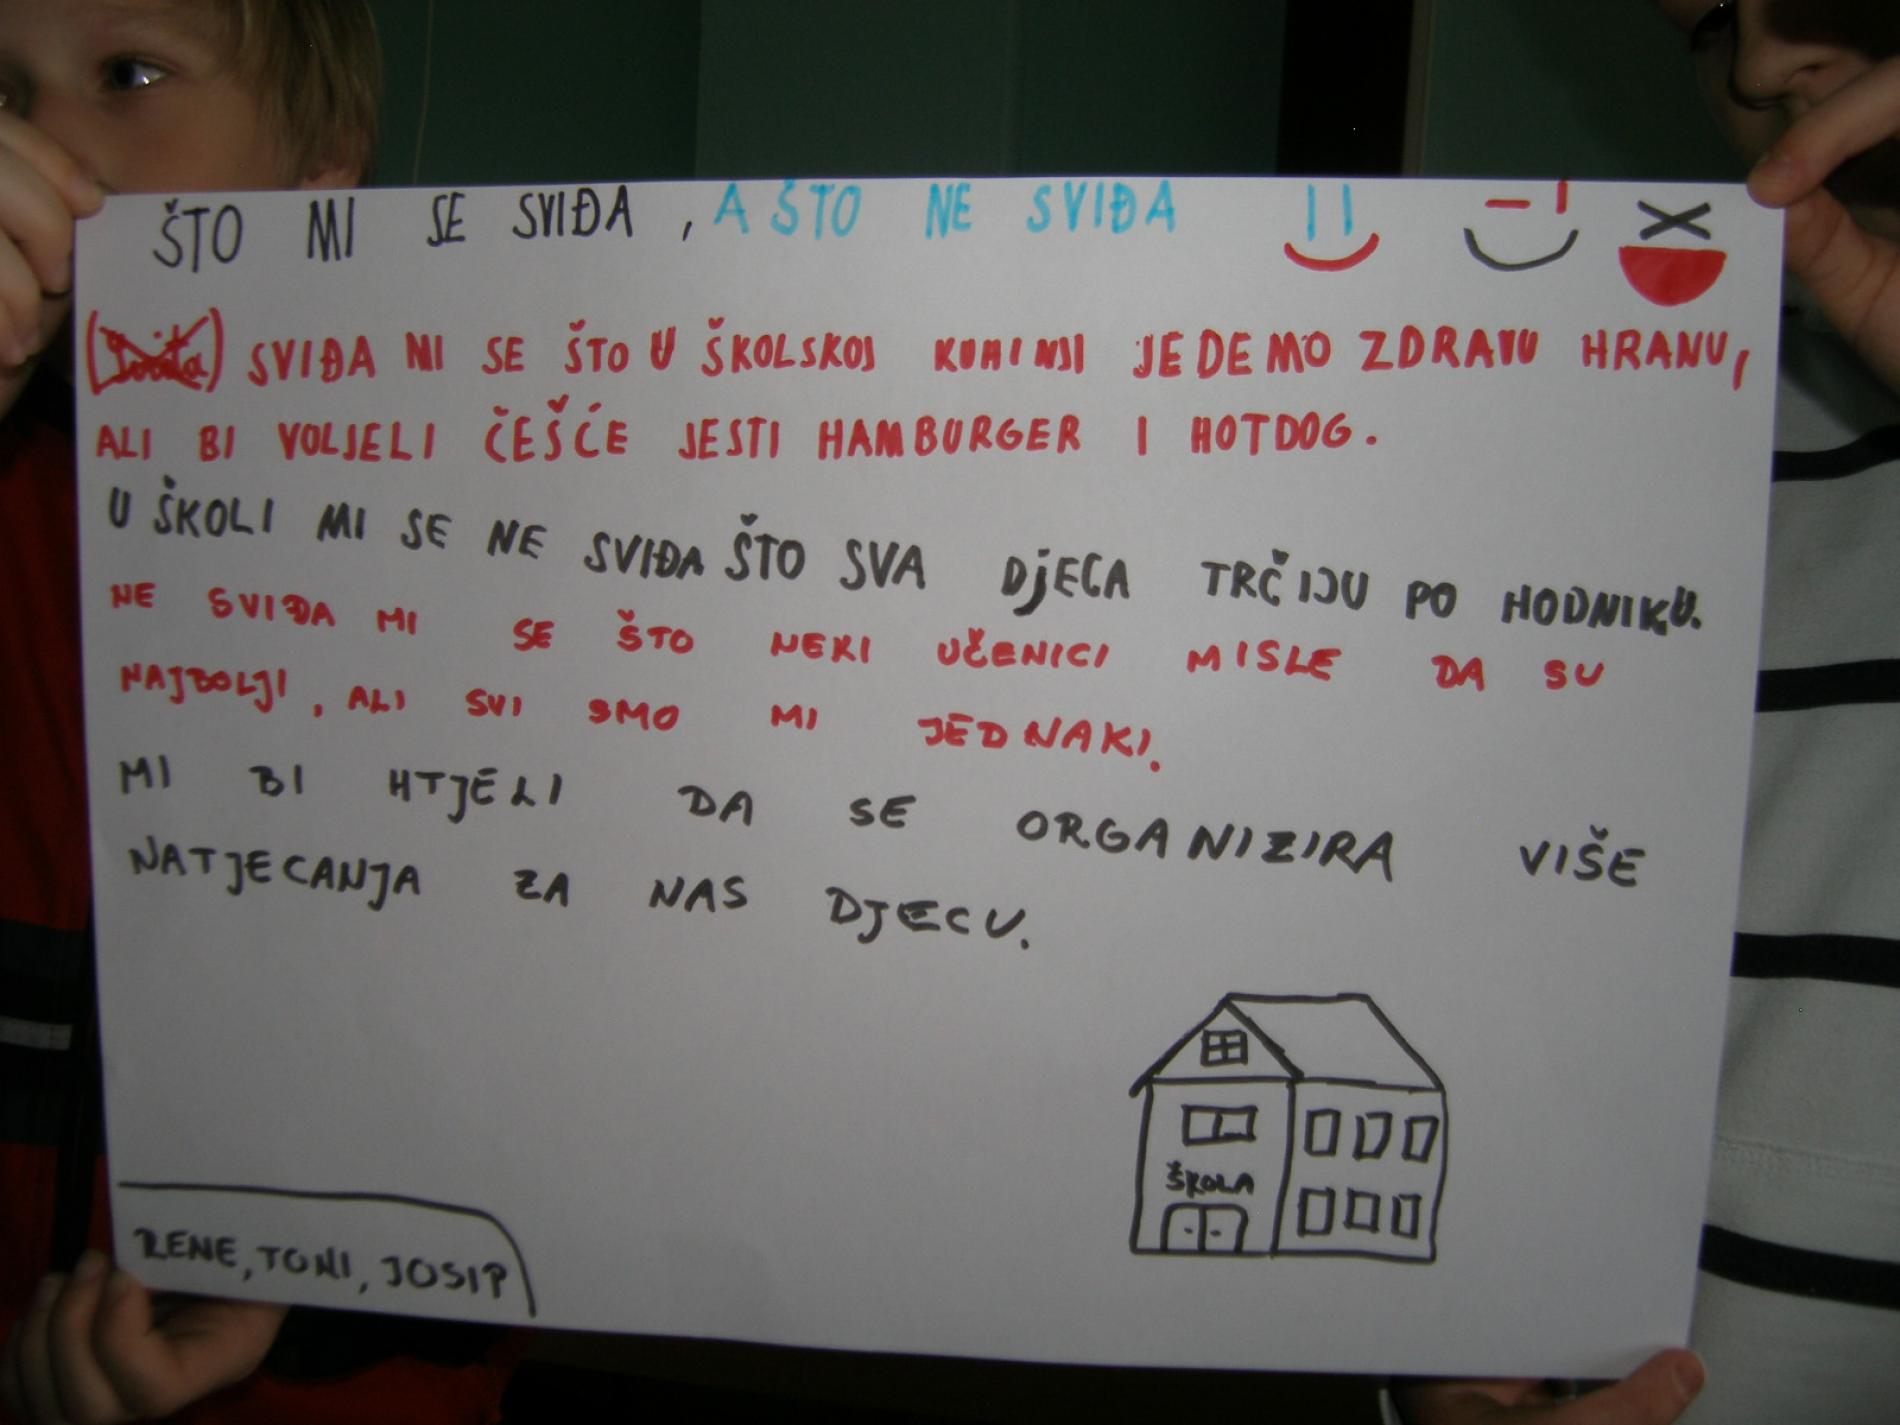 ŠTO MI SE SVIĐA, A ŠTO NE SVIĐA
SVIĐA MI SE ŠTO U ŠKOLSKOJ KUHINJI JEDEMO ZDRAVU HRANU,
ALI BI VOLJELI ČEŠĆE JESTI HAMBURGER I HOTDOG.
U ŠKOLI MI SE NE SVIĐA ŠTO SVA DjECA TRČIJU PO HODNIKU.
NE SVIĐA MI SE ŠTO NEKI UČENICI MISLE DA SU
NAJBOLJI, ALI SVI SMO MI JEDNAKI.
MI BI HTJELI DA SE ORGANIZIRA VIŠE
NATJECANJA ZA NAS DJECU.
ŠKOLA
RENE, TONI, JOSIP